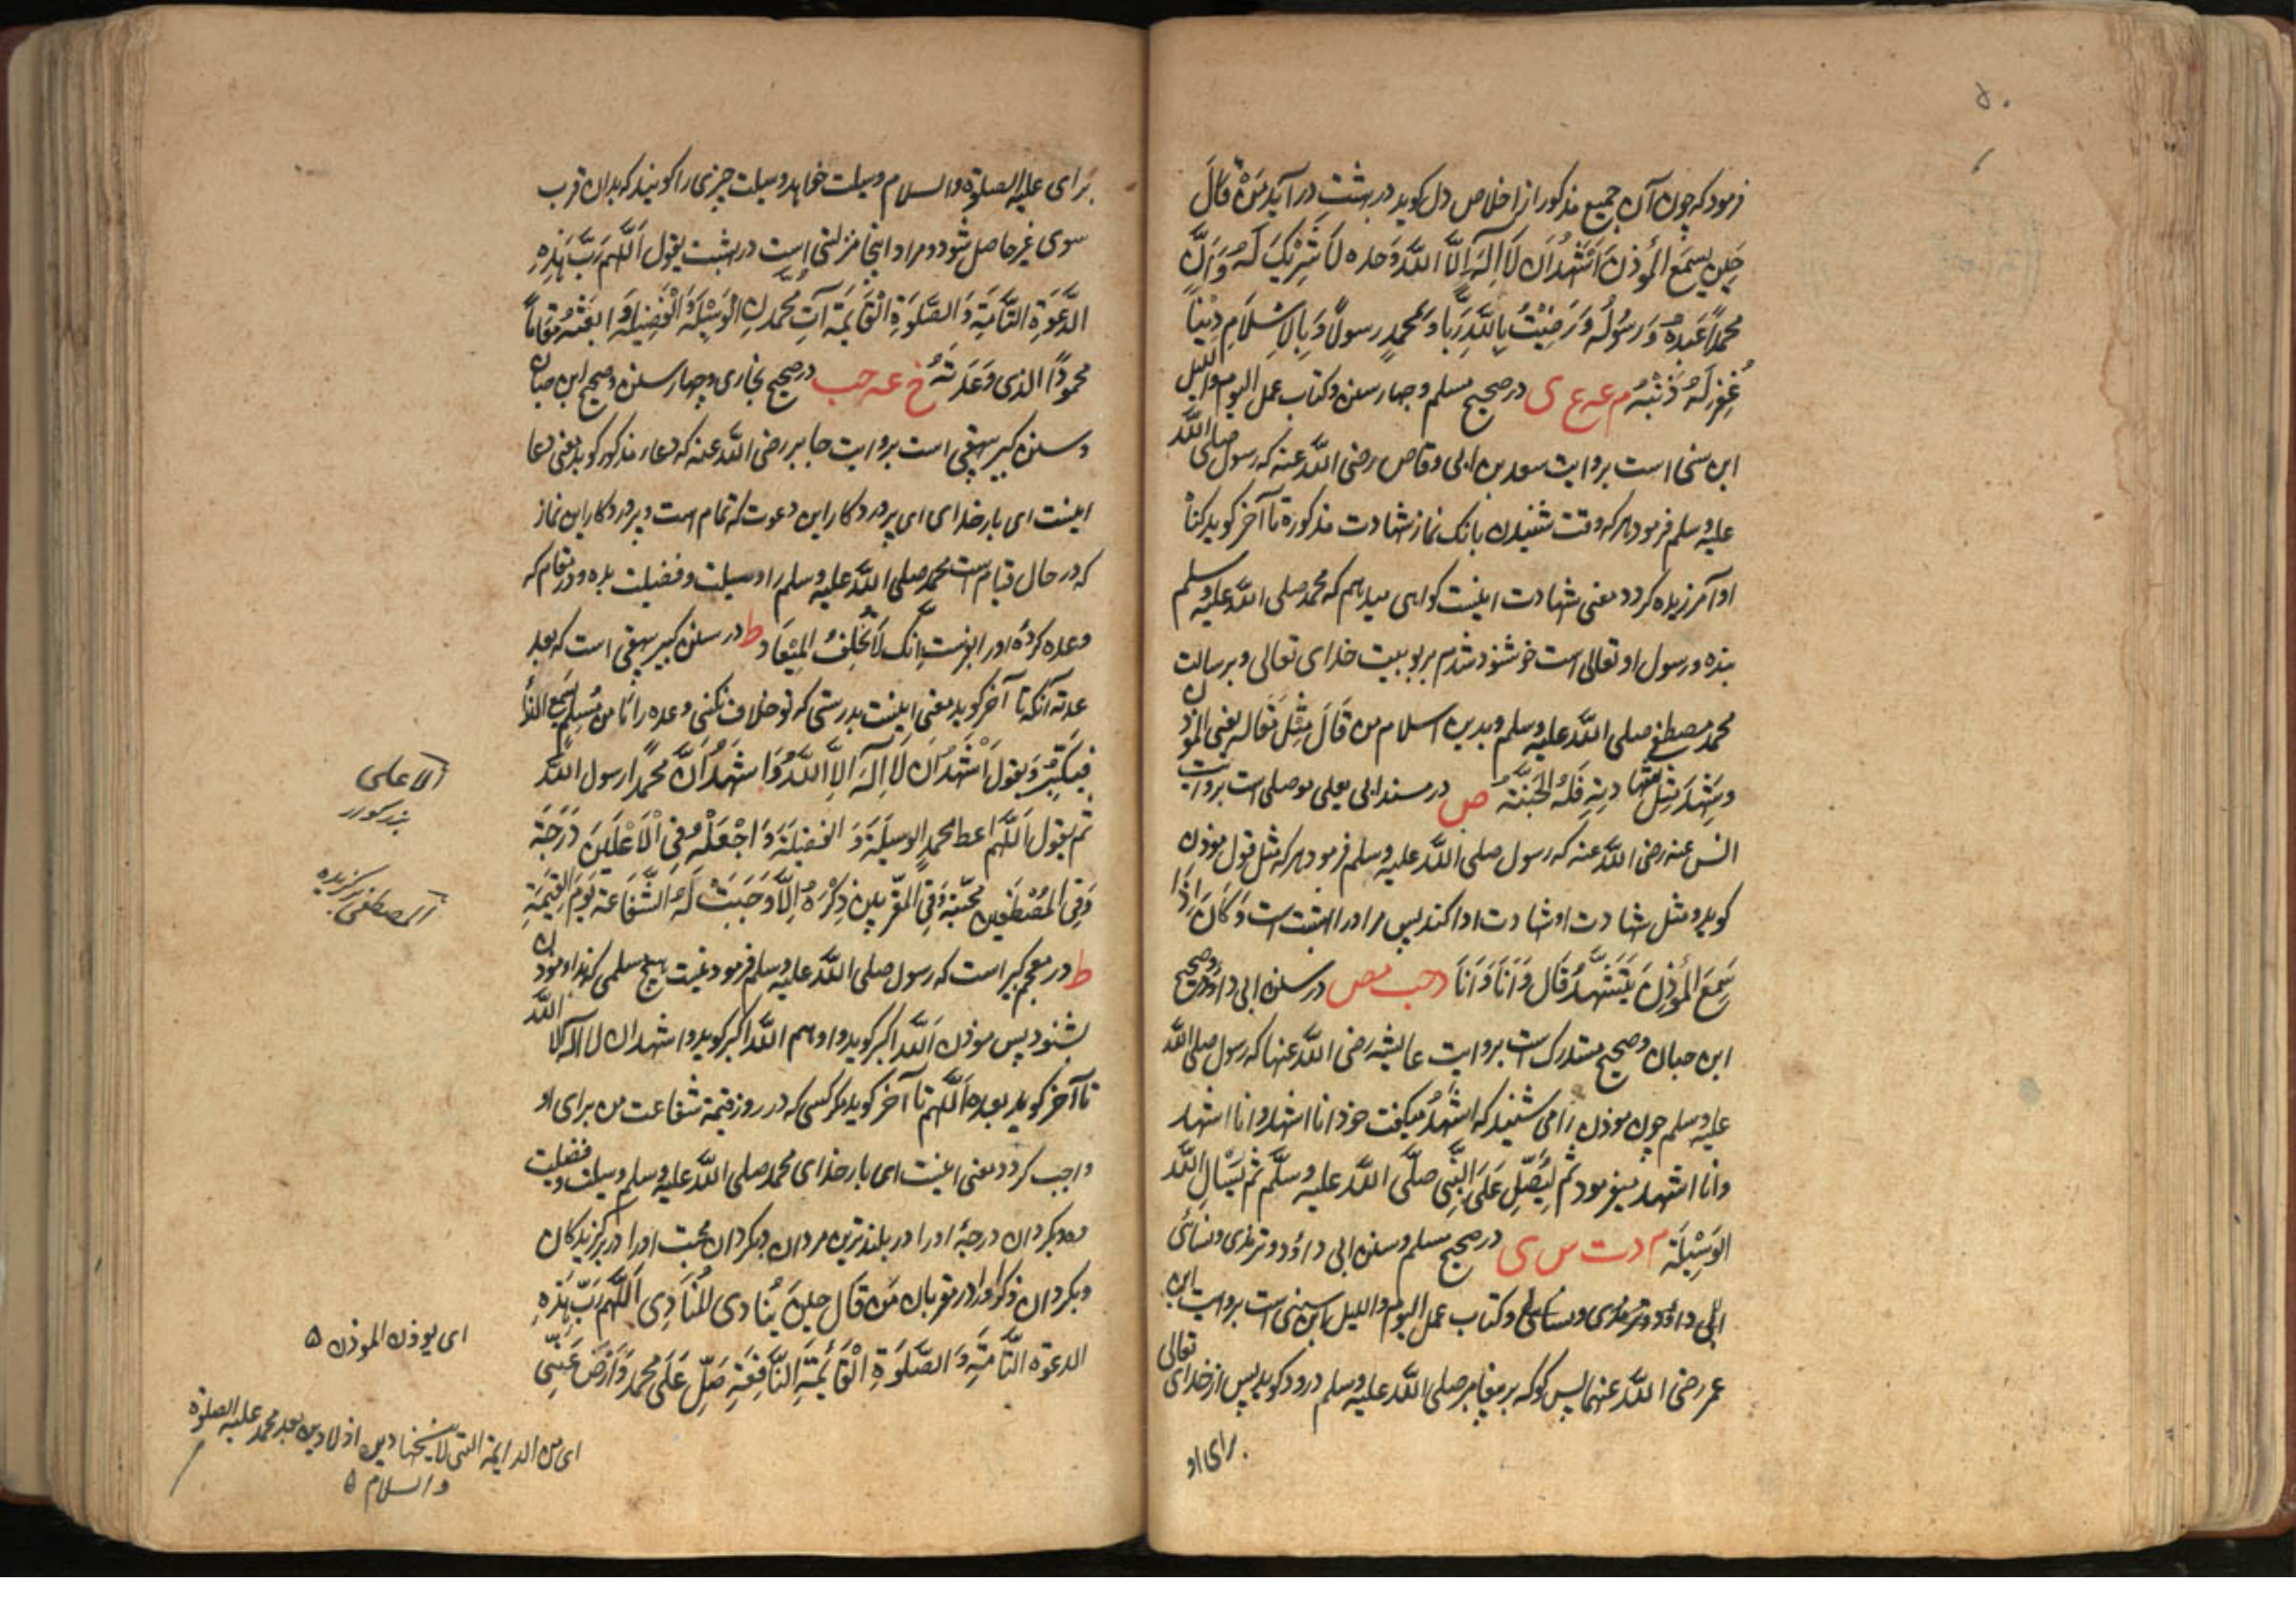 ۵۰
فرمود که چون آن جمیع مذکور از اخلاص دل کوید در بهشت درآید مَنْ قَالَ
حِیْنَ یسمع المؤذن اَشْهَدُ اَن لَا اِلٰهَ اِلَّا اللّٰه وَحده لَا شَرِیْکَ لَهُ وَ اَنَّ
محمدًا عَبدُهُ وَ رَسُولُه وَ رَضِیْتُ بِاللّٰهِ رَبًّا وَ بمحمدٍ رسولًا وَ بِالاِسْلَامِ دِیْنًا
غُفِرَ لَهُ ذَنْبُهُ م عه ی در صحیح مسلم و چهار سنن و کتاب عمل الیوم واللیل
ابن سنی است بروایت سعد بن ابی وقاص رضی اللّٰه عنه که رسول صلی اللّٰه
علیه و سلم فرمود هر که وقت شنیدن بانک نماز شهادت مذکوره تا آخر کوید کناه
او آمرزیده کردد معنی شهادت اینست کواهی میدهم که محمد صلی اللّٰه علیه و سلم
بنده و رسول او تعالی است خوشنود شدم بربوبیت خدای تعالی و برسالت
محمد مصطفی صلی اللّٰه علیه وسلم و بدین اسلام من قَالَ مِثْلَ مَقَاله یعنی المؤذن
وشَهِدَ مِثْلَ شهادتِهِ فَلَهُ الجَنَّة ص در مسند ابی یعلی موصلی است بروایت
انس عنه رضی اللّٰه عنه که رسول صلی اللّٰه علیه وسلم فرمود هر که مثل قول موذن
کوید و مثل شهادت او شهادت ادا کند پس مر او را بهشت است وَ کَانَ اِذَا
سَمِعَ المؤذِنَ یَتَشَهَّدُ قَالَ وَ اَنَا وَ اَنَا د حب مص در سنن ابی داؤد و صحیح
ابن حبان و صحیح مستدرک است بروایت عایشه رضی اللّٰه عنها که رسول صلی اللّٰه
علیه وسلم چون موذن را می شنید که اشهد میکفت خود انا اشهد و انا اشهد
و انا اشهد میفرمود ثم لیُصَلِّ عَلَی النَّبِی صلَّی اللّٰه علیه وسلَّم ثم یَسْاَلِ اللّٰه
الوَسِیْلَةَ م د ت س ی در صحیح مسلم و سنن ابی داؤد و ترمذی و نسائی
ابی داؤد و ترمذی و نسائی و کتاب عمل الیوم واللیل ابن سنی است بروایت ابن
عمر رضی اللّٰه عنهما پس کوکه بر پیغامبر صلی اللّٰه علیه وسلم درود کوید پس از خدای تعالی
برای او
برای علیه الصلوة والسلام وسیلت خواهد وسیلت چیزی را کویند که بدان قرب
سوی غیر حاصل شود و مراد اینجا منزلتی است در بهشت یقول اَللّٰهُمَّ رَبَّ هٰذِهِ
الدَّعْوَةِ التَّامَّةِ وَ الصَّلوٰةِ الْقَایِمَةِ آتِ مُحَمَّدَ نِ الْوَسِیْلَةَ وَ الْفَضِیْلَةَ وَ ابْعَثْهُ مَقَامًا
محمودًا الذی وَعَدتَهُ خ عه حب در صحیح بخاری و چهار سنن و صحیح ابن حبان
و سنن کبیر بیهقی است بروایت جابر رضی اللّٰه عنه که دعاء مذکور کوید معنی دعا
اینست ای بار خدای ای پروردکار این دعوت که تمام است و پروردکار این نماز
که در حال قیام است محمد صلی اللّٰه علیه وسلم را وسیلت و فضیلت بده و در مقام که
وعده کردهٔ او را برانکیز اِنَّکَ لَا تُخْلِفُ المِیْعَاد ط در سنن کبیر بیهقی است که بعد
وعدته انک تا آخر کوید معنی اینست بدرستی که تو خلاف نکنی وعده را مَا مِن مُسْلِمٍ یَسْمَعُ النِّدَا
فَیُکَبِّرُ وَ یَقُولُ اَشْهَدُ اَن لَا اِلٰهَ اِلَّا اللّٰهُ وَ اَشْهَدُ اَنَّ مُحَمَّدًا رسول اللّٰه
ثم یقول اَللّٰهُمَّ اعط محمدٍ الوسیلَةَ وَ الفضیلَةَ وَ اجْعَلْهُ فِی الْاَعْلَیْنَ دَرَجَةً
وَ فِی المُصْطَفَیْنَ مَحَبَّةً وَ فِی المُقَرَّبِیْنَ ذِکْرَهُ اِلَّا وَجَبَتْ لَهُ الشَّفَاعَةُ یَوْمَ القِیٰمَةِ
ط در معجم کبیر است که رسول صلی اللّٰه علیه وسلم فرمود نیست هیچ مسلمی که نداء موذن
بشنود پس موذن اَللّٰه اکبر کوید و او هم اللّٰه اکبر کوید و اشهد ان لا اله الا اللّٰه
تا آخر کوید بعده اَللّٰهم تا آخر کوید مکر کسی که در روز قیمة شفاعت من برای او
واجب کردد معنی اینست ای بار خدای محمد صلی اللّٰه علیه وسلم وسیلت و فضیلت
ده و بکردان درجهٔ او را در بلندترین مردان و بکردان محبت او را در برکزیدکان
و بکردان ذکر او را در مقربان مَن قَالَ حِیْنَ یُنَادِی المُنَادِی اَللّٰهُمَّ رَبَّ هٰذِهِ
الدعوة التَّامَّةِ وَ الصَّلوٰةِ الْقَائِمَةِ النَّافِعَةِ صَلِّ عَلَی محمد وَ ارْضَ عَنِّی
الاعلی
المصطفی برکزیده
ای یوذن الموذن ۵
والسلام ۵